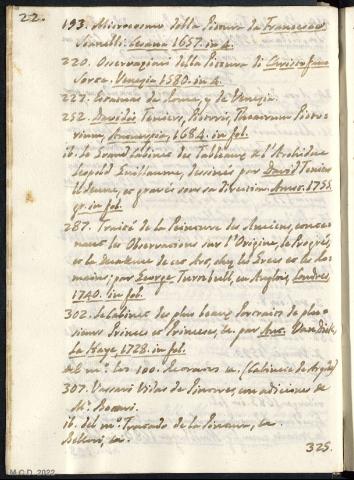 22.
193. Microcosmo della Pittura da Francesco
Scanelli: Cesena 1657. in 4.
220. Osservazioni della Pittura di Christofano
Sorte. Venezia 1580. in 4.
227. Estamas de Roma, y de Venezia.
252. Davidis Teniers, Pictoris, Theatrum Picto-
rium, Antuerpia, 1684. in fol.
ib. Le Grand Cabinet des Tableaux de l'Archiduc
Leopold Guillaume, dessinés par David Teniers
et gravés sous sa direction Amst. 1755.
gr. in fol.
287. Traité de la Peinture des Anciens, conte-
nant les Observations sur l'Origine, le Progrès,
et la Decadence de cet Art, chez les Grecs et les Ro-
mains; par George Turnbull, en Anglois, Londres,
1740. in fol.
302. Le Cabinet des plus beaux Portraits de plu-
sieurs Princes et Princesses, &c. par Ant. Van Dick,
La Haye 1728. in fol.
del mo. los 100. Retratos
307. Vassari Vitas de Pintores, con adiciones de
Mr. Bottari.
ib. del mo. Tratado de la Pintura, &c.
Bellori, &c.
325.
M.C.D. 2022